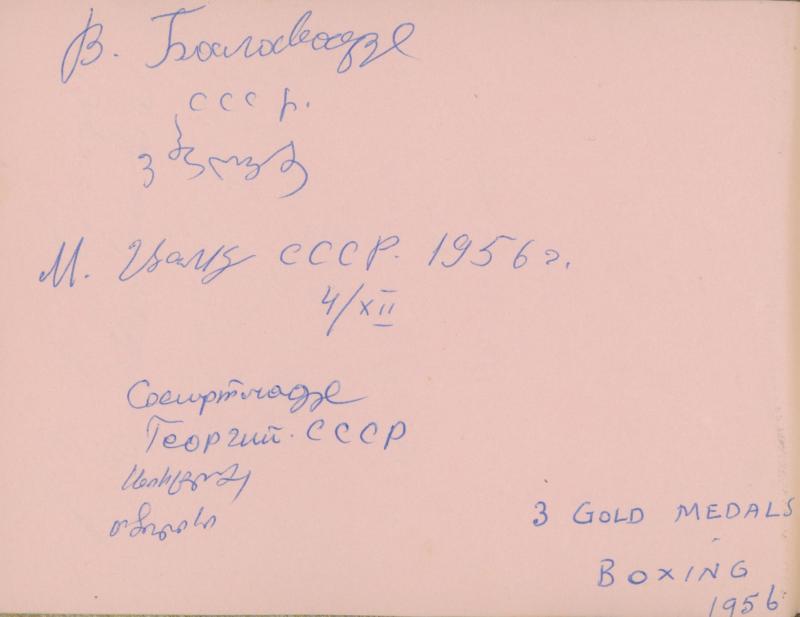 В. Балавадзе
СССР.
М. Цалк СССР. 1956 г.
4/XII
Схиртладзе
Георгий. СССР
3 GOLD MEDALS
BOXING
1956